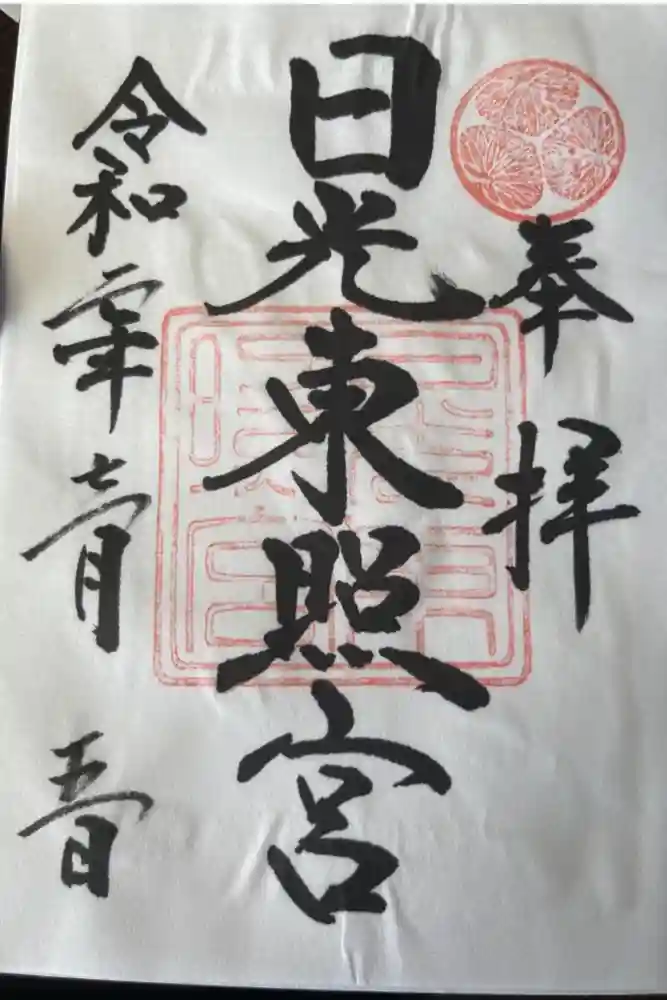 奉拝
日光東照宮
令和二年 月五日